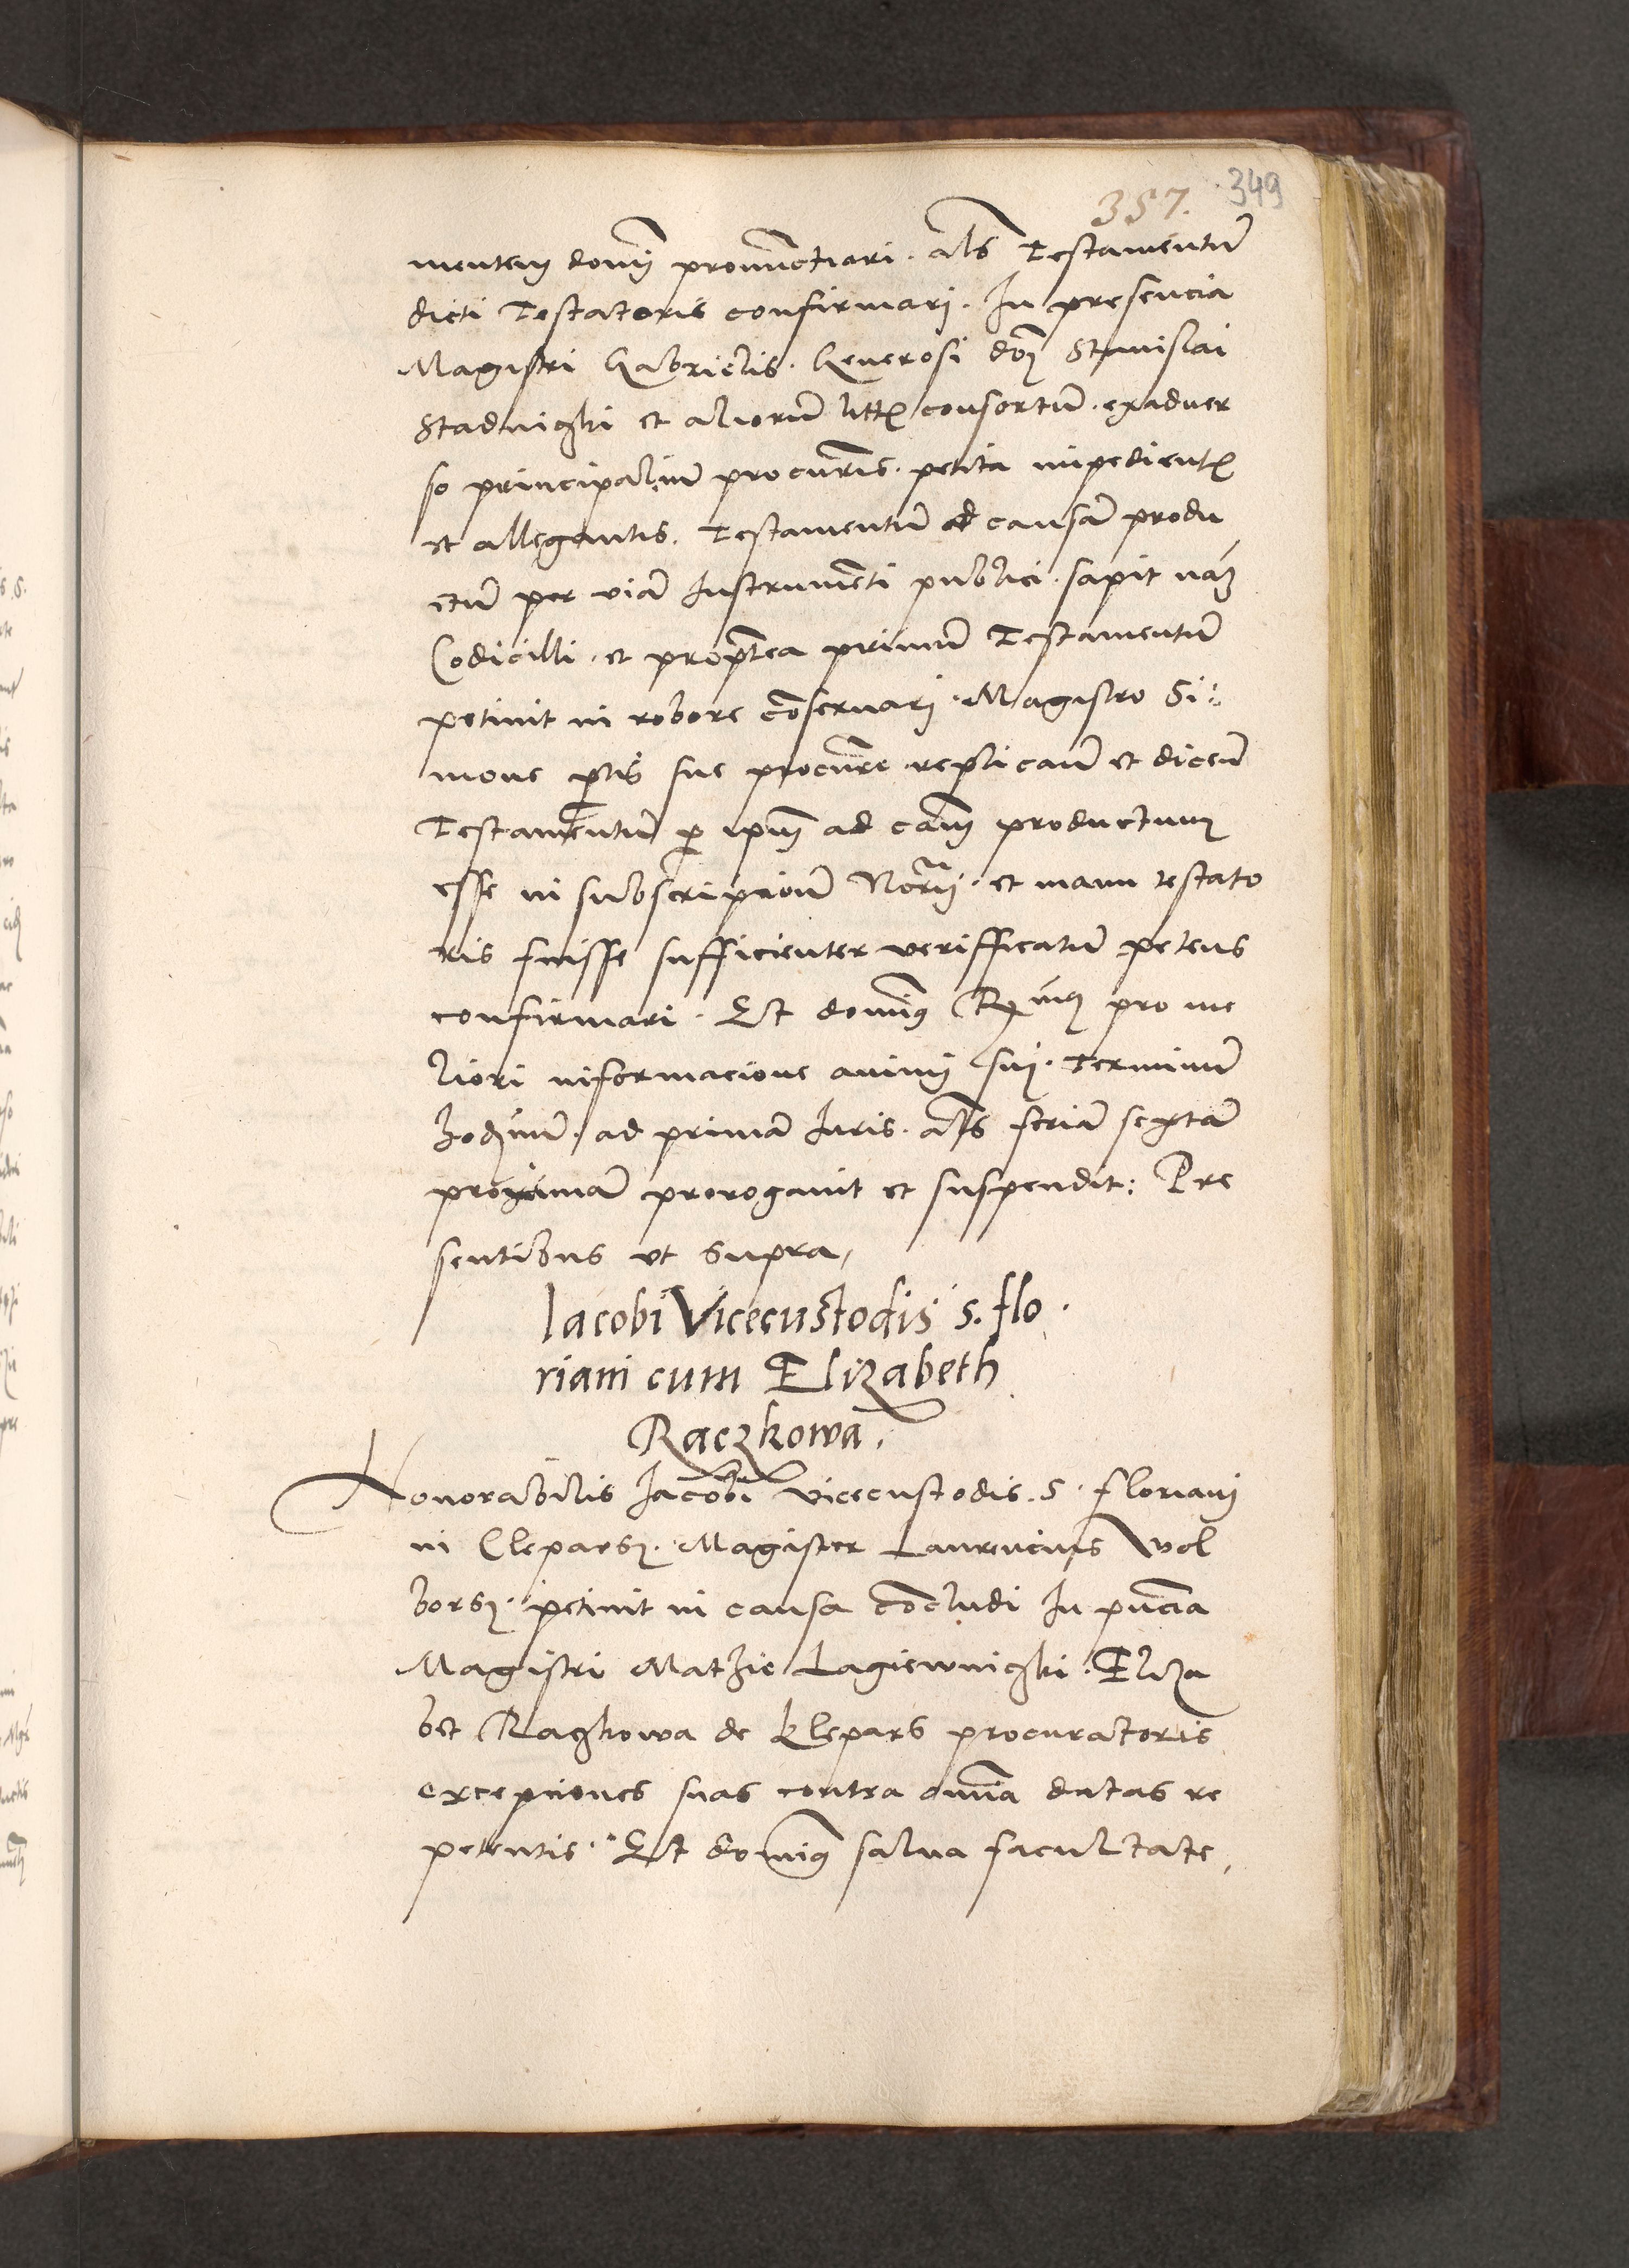 357. 349
mentem domī pronūctiari. als Testamentū
dicti Testatoris confirmari. In presencia
Magistri Gabrielis. Generosi dōi Stanislai
Stadniczki et aliorū litt consortū. exadver
so principaliū procurīs. petita impedient
et allegantis. Testamentū ad causā produ
ctū per viā Instrumēti publici. sapit nām
Codicilli. et proptea primū Testamentū
petivit in robore cōservari. Magistro Si:
mone ptis sue procurē replicaū et diceū
Testamentū p ipm ad cam productum
esse in subscripcioū Norii. et manu testato
ris fuisse sufficienter verifficatū petens
confirmari. Et domīs R mus pro me
liori informacione animi sui. Terminū
hodnū. ad primā Iuris. als feriā sextā
proximā prorogavit et suspendit: Pre
sentibus ut supra,
Iacobi Vicecustodis s. flo.
riani cum Elizabeth
Raczkowa.
Honorabilis Iacobi vicecustodis. S. Floriani
in Cleparz. Magister Laurencius Wol
borz. petivit in causa cōcludi In pn̄cia
Magistri Mathie Lagiewniczki. Eliza
bet Raczkowa de Kleparz procuratoris
excepciones suas contra omīa datas re
petentis. Et domīs salva facultate,